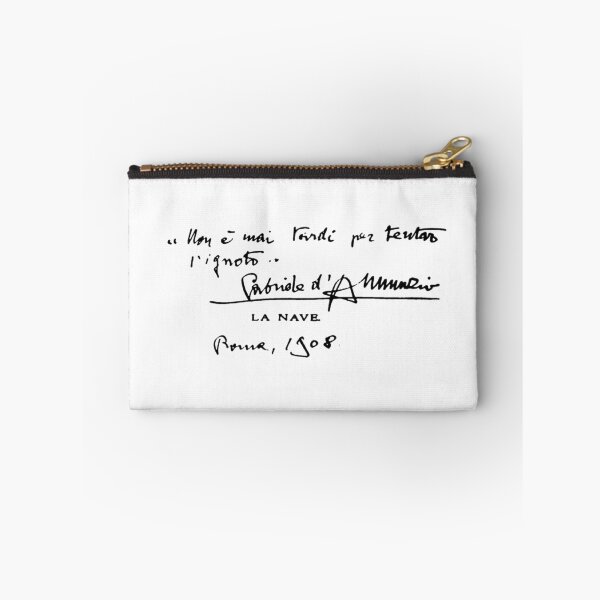 „ Non è mai tardi per tentar
l'ignoto „
Gabriele d'Annunzio
LA NAVE.
Roma, 1908